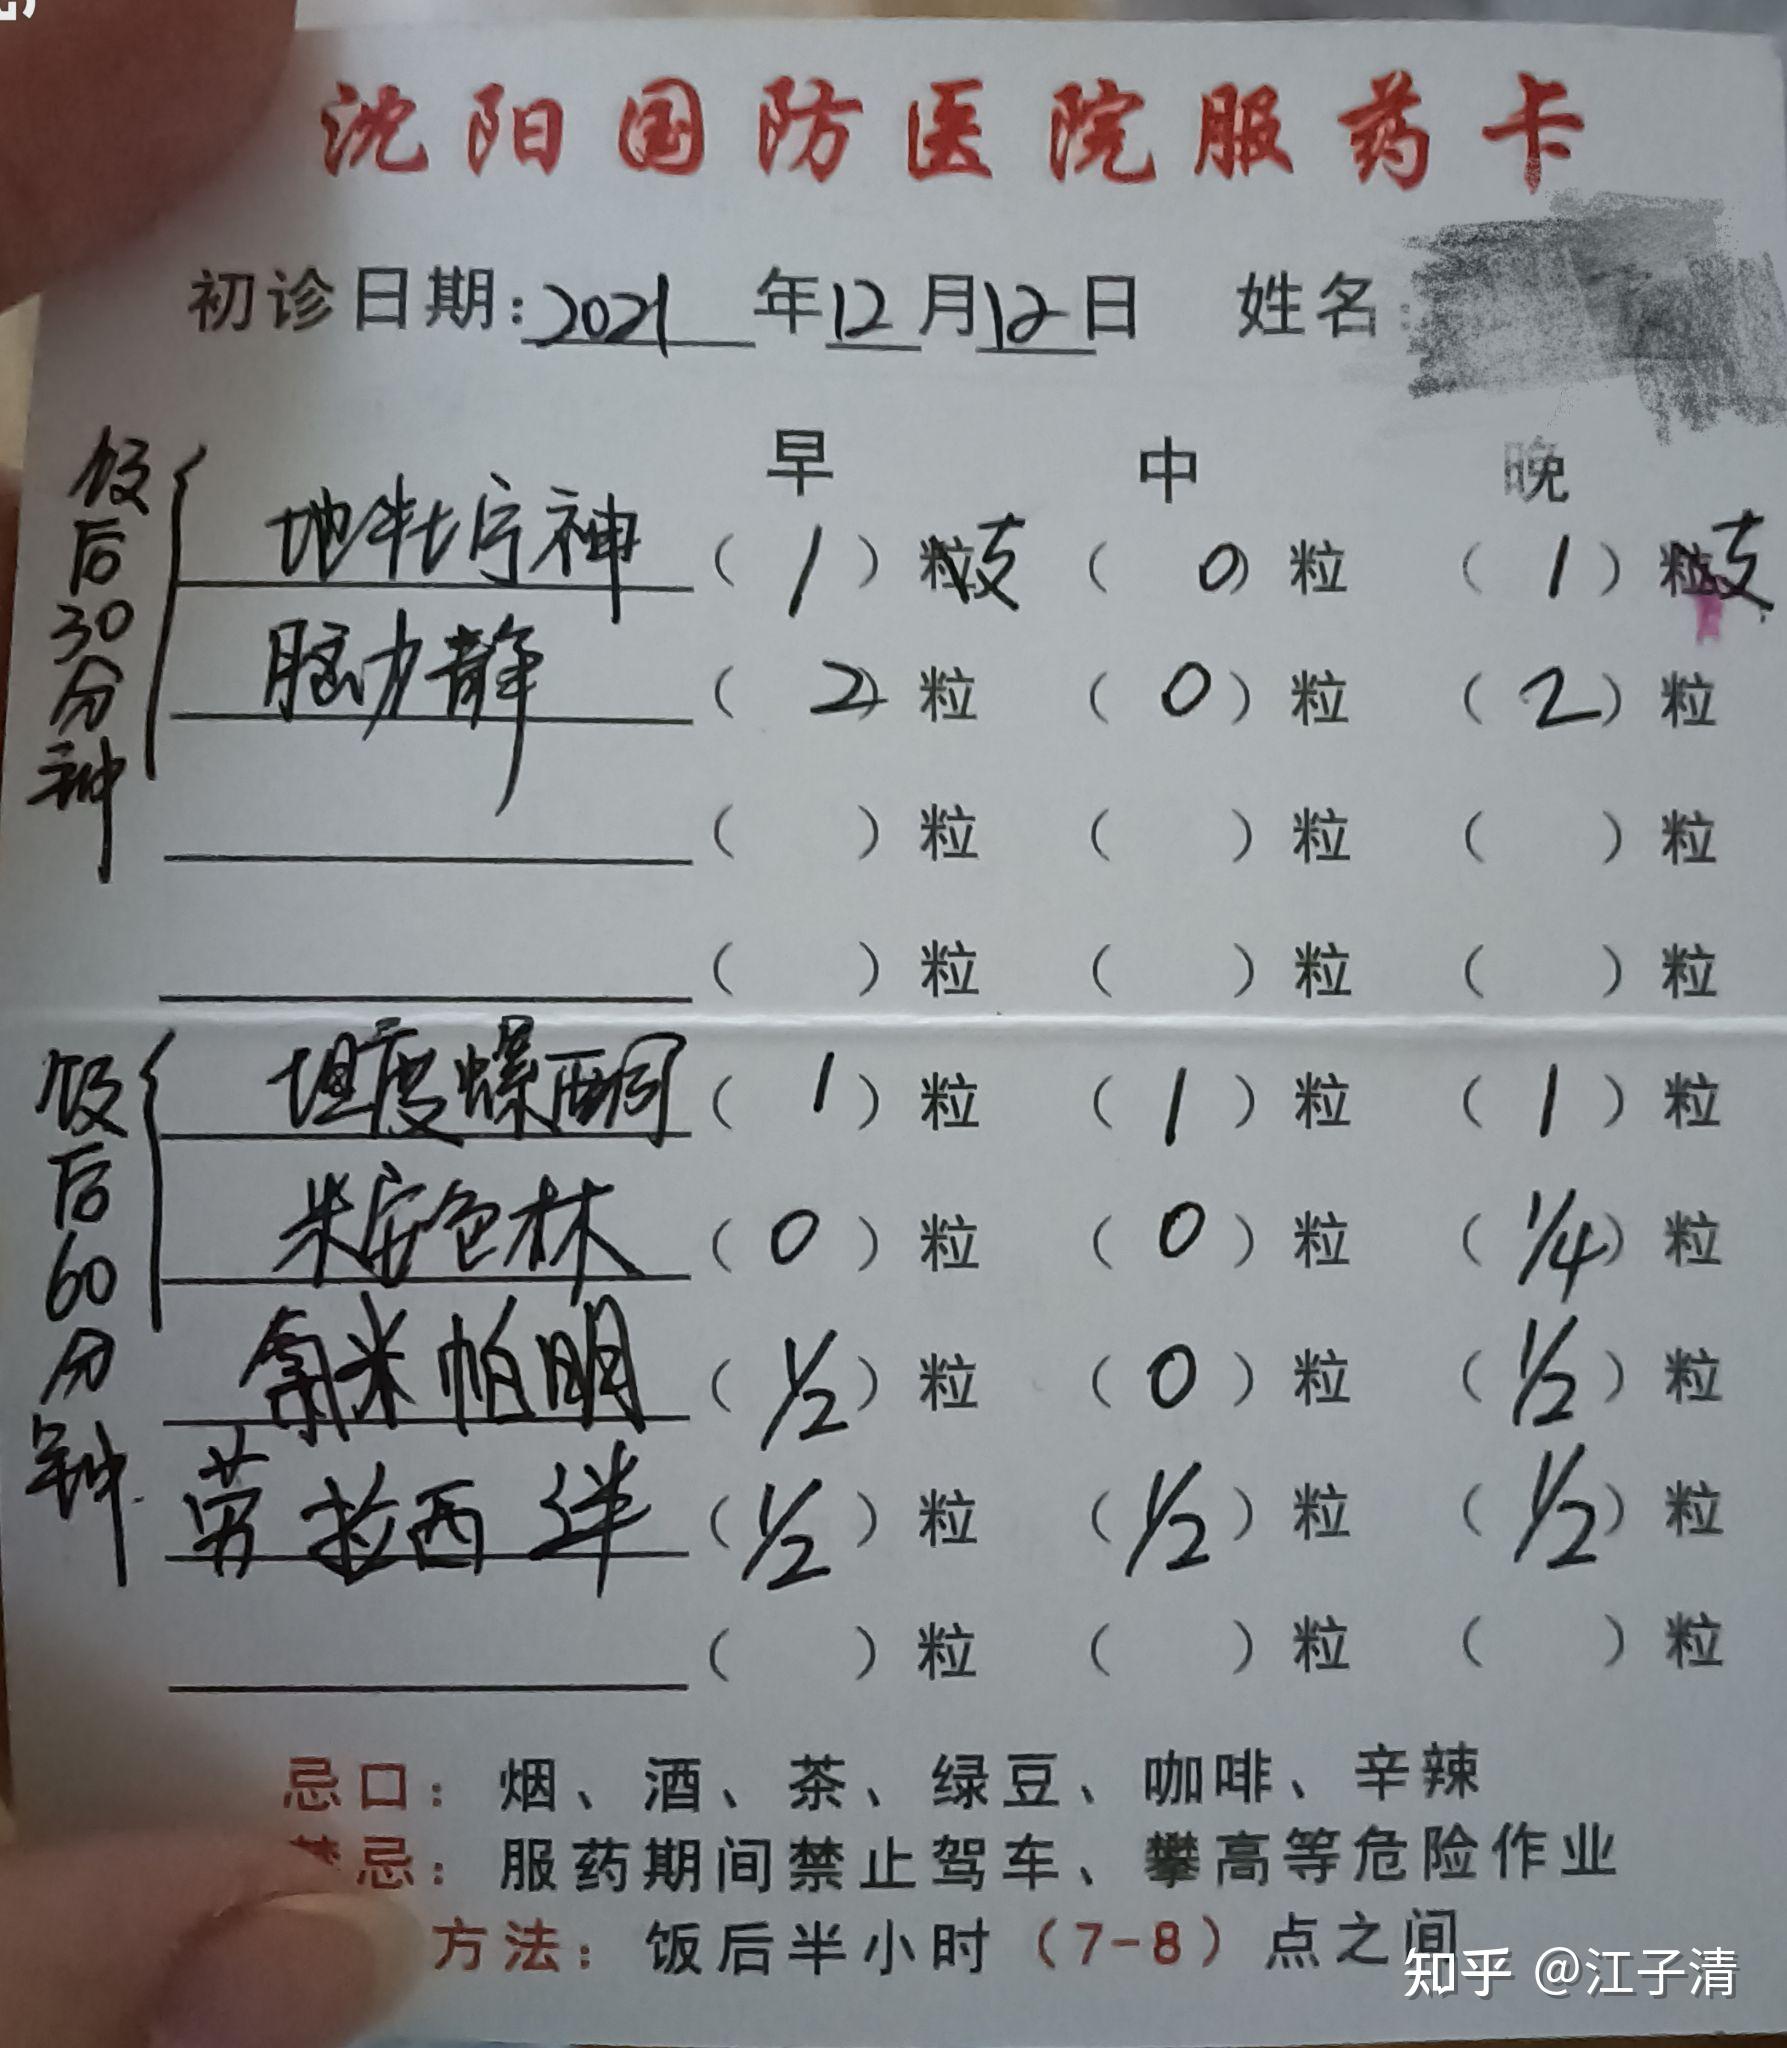 沈阳国防医院服药卡
初诊日期：2021年12月12日 姓名：
早 中 晚
饭后30分钟
地牡宁神（1）粒支（0）粒（1）粒支
脑力静（2）粒（0）粒（2）粒
（ ）粒（ ）粒（ ）粒
（ ）粒（ ）粒（ ）粒
饭后60分钟
坦度螺酮（1）粒（1）粒（1）粒
米安色林（0）粒（0）粒（1/4）粒
米帕明（1/2）粒（0）粒（1/2）粒
劳拉西泮（1/2）粒（1/2）粒（1/2）粒
（ ）粒（ ）粒（ ）粒
忌口：烟、酒、茶、绿豆、咖啡、辛辣
忌：服药期间禁止驾车、攀高等危险作业
方法：饭后半小时（7-8）点之间
知乎 @江子清